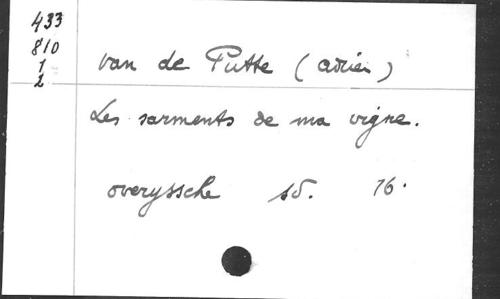 433
810
1
2
van de Putte (Adrien)
Les sarments de ma vigne.
Overyssche sd. 16.